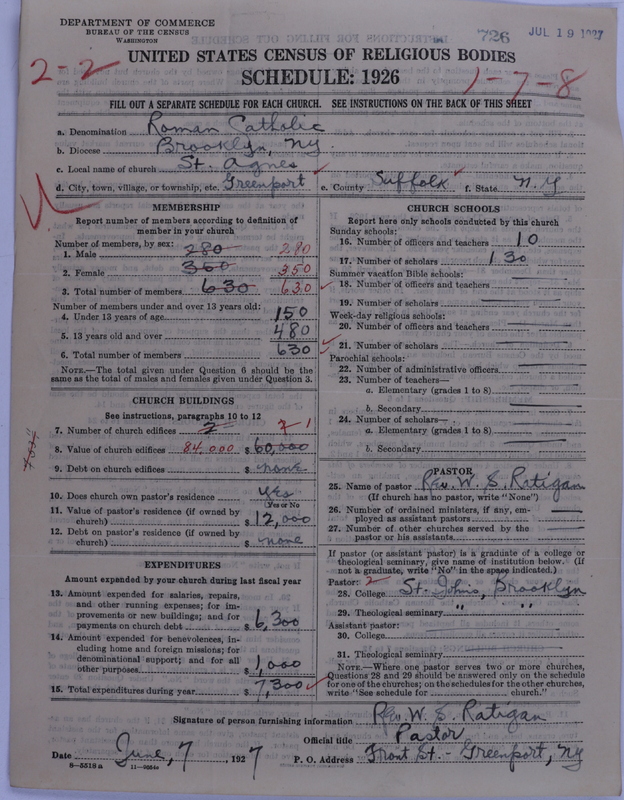 DEPARTMENT OF COMMERCE
BUREAU OF THE CENSUS
WASHINGTON
726
JUL 19 1927
UNITED STATES CENSUS OF RELIGIOUS BODIES
2-2
SCHEDULE: 1926
1-7-8
FILL OUT A SEPARATE SCHEDULE FOR EACH CHURCH. SEE INSTRUCTIONS ON THE BACK OF THIS SHEET
a. Denomination Roman Catholic
b. Diocese Brooklyn, NY.
c. Local name of church St. Agnes
d. City, town, village, or township, etc. Greenport e. County Suffolk f. State N.Y
MEMBERSHIP
Report number of members according to definition of
member in your church
Number of members, by sex:
1. Male 280 280
2. Female 350 350
3. Total number of members 630 630
Number of members under and over 13 years old:
4. Under 13 years of age 150
5. 13 years old and over 480
6. Total number of members 630
NOTE.—The total given under Question 6 should be
same as the total of males and females given under Question 3.
CHURCH BUILDINGS
See instructions, paragraphs 10 to 12
7. Number of church edifices 2 1
8. Value of church edifices 84,000 $ 60,000
9. Debt on church edifices $ none
10. Does church own pastor's residence yes
(Yes or No)
11. Value of pastor's residence (if owned by
church) $ 12,000
12. Debt on pastor's residence (if owned by
church) $ none
EXPENDITURES
Amount expended by your church during last fiscal year
13. Amount expended for salaries, repairs,
and other running expenses; for im-
provements or new buildings; and for
payments on church debt $ 6,300
14. Amount expended for benevolences, in-
cluding home and foreign missions; for
denominational support; and for all
other purposes $ 1,000
15. Total expenditures during year $ 7,300
CHURCH SCHOOLS
Report here only schools conducted by this church
Sunday schools:
16. Number of officers and teachers 10
17. Number of scholars 130
Summer vacation Bible schools:
18. Number of officers and teachers
19. Number of scholars
Week-day religious schools:
20. Number of officers and teachers
21. Number of scholars
Parochial schools:
22. Number of administrative officers
23. Number of teachers—
a. Elementary (grades 1 to 8)
b. Secondary
24. Number of scholars—
a. Elementary (grades 1 to 8)
b. Secondary
PASTOR
25. Name of pastor Rev. W. S. Ratigan
(If church has no pastor, write "None")
26. Number of ordained ministers, if any, em-
ployed as assistant pastors
27. Number of other churches served by the
pastor or his assistants
If pastor (or assistant pastor) is a graduate of a college or
theological seminary, give name of institution below. (If
not a graduate, write "No" in the space indicated.)
Pastor: 2
28. College St. Johns, Brooklyn
29. Theological seminary " "
Assistant pastor:
30. College
31. Theological seminary
NOTE.—Where one pastor serves two or more churches,
Questions 28 and 29 should be answered only on the schedule
for one of the churches; on the schedules for the other churches,
write "See schedule for church."
Signature of person furnishing information Rev. W. S. Ratigan
Official title Pastor
Date June, 7, 1927 P. O. Address Front St. - Greenport, NY
8—5518 a 11—9254a